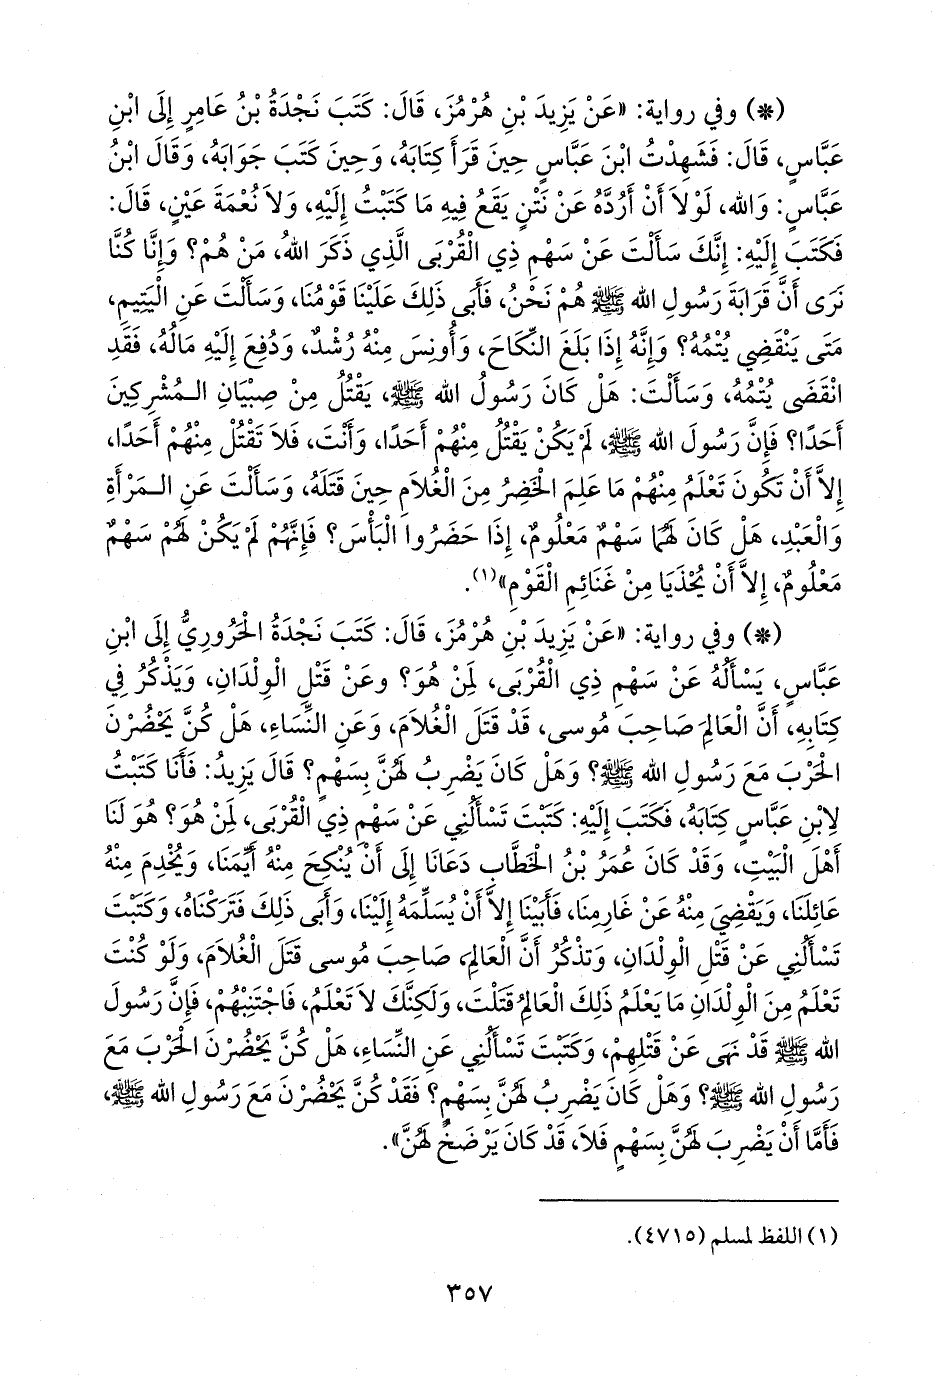 (*) وفي رواية: «عَنْ يَزِيدَ بْنِ هُرْمُزَ، قَالَ: كَتَبَ نَجْدَةُ بْنُ عَامِرٍ إِلَى ابْنِ
عَبَّاسٍ، قَالَ: فَشَهِدْتُ ابْنَ عَبَّاسٍ حِينَ قَرَأَ كِتَابَهُ، وَحِينَ كَتَبَ جَوَابَهُ، وَقَالَ ابْنُ
عَبَّاسٍ: وَالله، لَوْلاَ أَنْ أَرُدَّهُ عَنْ نَتْنٍ يَقَعُ فِيهِ مَا كَتَبْتُ إِلَيْهِ، وَلاَ نُعْمَةَ عَيْنٍ، قَالَ:
فَكَتَبَ إِلَيْهِ: إِنَّكَ سَأَلْتَ عَنْ سَهْمِ ذِي الْقُرْبَى الَّذِي ذَكَرَ اللهُ، مَنْ هُمْ؟ وَإِنَّا كُنَّا
نَرَى أَنَّ قَرَابَةَ رَسُولِ الله ﷺ هُمْ نَحْنُ، فَأَبَى ذَلِكَ عَلَيْنَا قَوْمُنَا، وَسَأَلْتَ عَنِ الْيَتِيمِ،
مَتَى يَنْقَضِي يُتْمُهُ؟ وَإِنَّهُ إِذَا بَلَغَ النِّكَاحَ، وَأُونِسَ مِنْهُ رُشْدٌ، وَدُفِعَ إِلَيْهِ مَالُهُ، فَقَدِ
انْقَضَى يُتْمُهُ، وَسَأَلْتَ: هَلْ كَانَ رَسُولُ الله ﷺ، يَقْتُلُ مِنْ صِبْيَانِ الـمُشْرِكِينَ
أَحَدًا؟ فَإِنَّ رَسُولَ الله ﷺ، لَمْ يَكُنْ يَقْتُلُ مِنْهُمْ أَحَدًا، وَأَنْتَ، فَلاَ تَقْتُلْ مِنْهُمْ أَحَدًا،
إِلاَّ أَنْ تَكُونَ تَعْلَمُ مِنْهُمْ مَا عَلِمَ الْخَضِرُ مِنَ الْغُلاَمِ حِينَ قَتَلَهُ، وَسَأَلْتَ عَنِ الـمَرْأَةِ
وَالْعَبْدِ، هَلْ كَانَ لَهُمَا سَهْمٌ مَعْلُومٌ، إِذَا حَضَرُوا الْبَأْسَ؟ فَإِنَّهُمْ لَمْ يَكُنْ لَهُمْ سَهْمٌ
مَعْلُومٌ، إِلاَّ أَنْ يُحْذَيَا مِنْ غَنَائِمِ الْقَوْمِ»(١).
(*) وفي رواية: «عَنْ يَزِيدَ بْنِ هُرْمُزَ، قَالَ: كَتَبَ نَجْدَةُ الْحَرُورِيُّ إِلَى ابْنِ
عَبَّاسٍ، يَسْأَلُهُ عَنْ سَهْمِ ذِي الْقُرْبَى، لِمَنْ هُوَ؟ وعَنْ قَتْلِ الْوِلْدَانِ، وَيَذْكُرُ فِي
كِتَابِهِ، أَنَّ الْعَالِمَ صَاحِبَ مُوسى، قَدْ قَتَلَ الْغُلاَمَ، وَعَنِ النِّسَاءِ، هَلْ كُنَّ يَحْضُرْنَ
الْحَرْبَ مَعَ رَسُولِ الله ﷺ؟ وَهَلْ كَانَ يَضْرِبُ لَهُنَّ بِسَهْمٍ؟ قَالَ يَزِيدُ: فَأَنَا كَتَبْتُ
لاِبْنِ عَبَّاسٍ كِتَابَهُ، فَكَتَبَ إِلَيْهِ: كَتَبْتَ تَسْأَلُنِي عَنْ سَهْمِ ذِي الْقُرْبَى، لِمَنْ هُوَ؟ هُوَ لَنَا
أَهْلَ الْبَيْتِ، وَقَدْ كَانَ عُمَرُ بْنُ الْخَطَّابِ دَعَانَا إِلَى أَنْ يُنْكِحَ مِنْهُ أَيِّمَنَا، وَيُخْدِمَ مِنْهُ
عَائِلَنَا، وَيَقْضِيَ مِنْهُ عَنْ غَارِمِنَا، فَأَبَيْنَا إِلاَّ أَنْ يُسَلِّمَهُ إِلَيْنَا، وَأَبَى ذَلِكَ فَتَرَكْنَاهُ، وَكَتَبْتَ
تَسْأَلُنِي عَنْ قَتْلِ الْوِلْدَانِ، وَتَذْكُرُ أَنَّ الْعَالِمَ صَاحِبَ مُوسى قَتَلَ الْغُلاَمَ، وَلَوْ كُنْتَ
تَعْلَمُ مِنَ الْوِلْدَانِ مَا يَعْلَمُ ذَلِكَ الْعَالِمُ قَتَلْتَ، وَلَكِنَّكَ لاَ تَعْلَمُ، فَاجْتَنِبْهُمْ، فَإِنَّ رَسُولَ
الله ﷺ قَدْ نَهَى عَنْ قَتْلِهِمْ، وَكَتَبْتَ تَسْأَلُنِي عَنِ النِّسَاءِ، هَلْ كُنَّ يَحْضُرْنَ الْحَرْبَ مَعَ
رَسُولِ الله ﷺ؟ وَهَلْ كَانَ يَضْرِبُ لَهُنَّ بِسَهْمٍ؟ فَقَدْ كُنَّ يَحْضُرْنَ مَعَ رَسُولِ الله ﷺ،
فَأَمَّا أَنْ يَضْرِبَ لَهُنَّ بِسَهْمٍ فَلاَ، قَدْ كَانَ يَرْضَخُ لَهُنَّ».
(١) اللفظ لمسلم (٤٧١٥).
٣٥٧